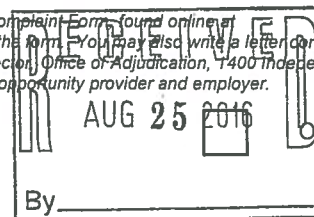 omplaint Form, found online at
the form. You may also write a letter con
ector, Office of Adjudication, 1400 Indepe
opportunity provider and employer.
RECEIVED
AUG 25 2016
By